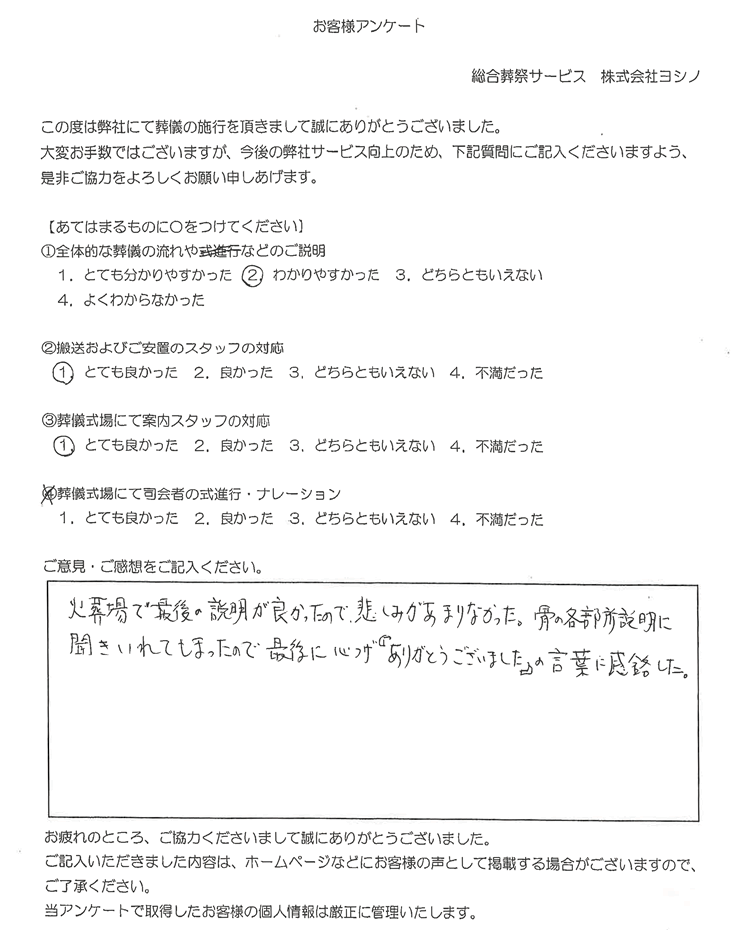 お客様アンケート
総合葬祭サービス　株式会社ヨシノ
この度は弊社にて葬儀の施行を頂きまして誠にありがとうございました。
大変お手数ではございますが、今後の弊社サービス向上のため、下記質問にご記入くださいますよう、
是非ご協力をよろしくお願い申しあげます。
【あてはまるものに〇をつけてください】
①全体的な葬儀の流れや式進行などのご説明
1．とても分かりやすかった　2．わかりやすかった　3．どちらともいえない
4．よくわからなかった
②搬送およびご安置のスタッフの対応
1．とても良かった　2．良かった　3．どちらともいえない　4．不満だった
③葬儀式場にて案内スタッフの対応
1．とても良かった　2．良かった　3．どちらともいえない　4．不満だった
④葬儀式場にて司会者の式進行・ナレーション
1．とても良かった　2．良かった　3．どちらともいえない　4．不満だった
ご意見・ご感想をご記入ください。
火葬場で最後の説明が良かったので、悲しみがあまりなかった。骨の各部所説明に
聞きいれてしまったので最後に　　「ありがとうございました」の言葉に感銘した。
お疲れのところ、ご協力くださいまして誠にありがとうございました。
ご記入いただきました内容は、ホームページなどにお客様の声として掲載する場合がございますので、
ご了承ください。
当アンケートで取得したお客様の個人情報は厳正に管理いたします。